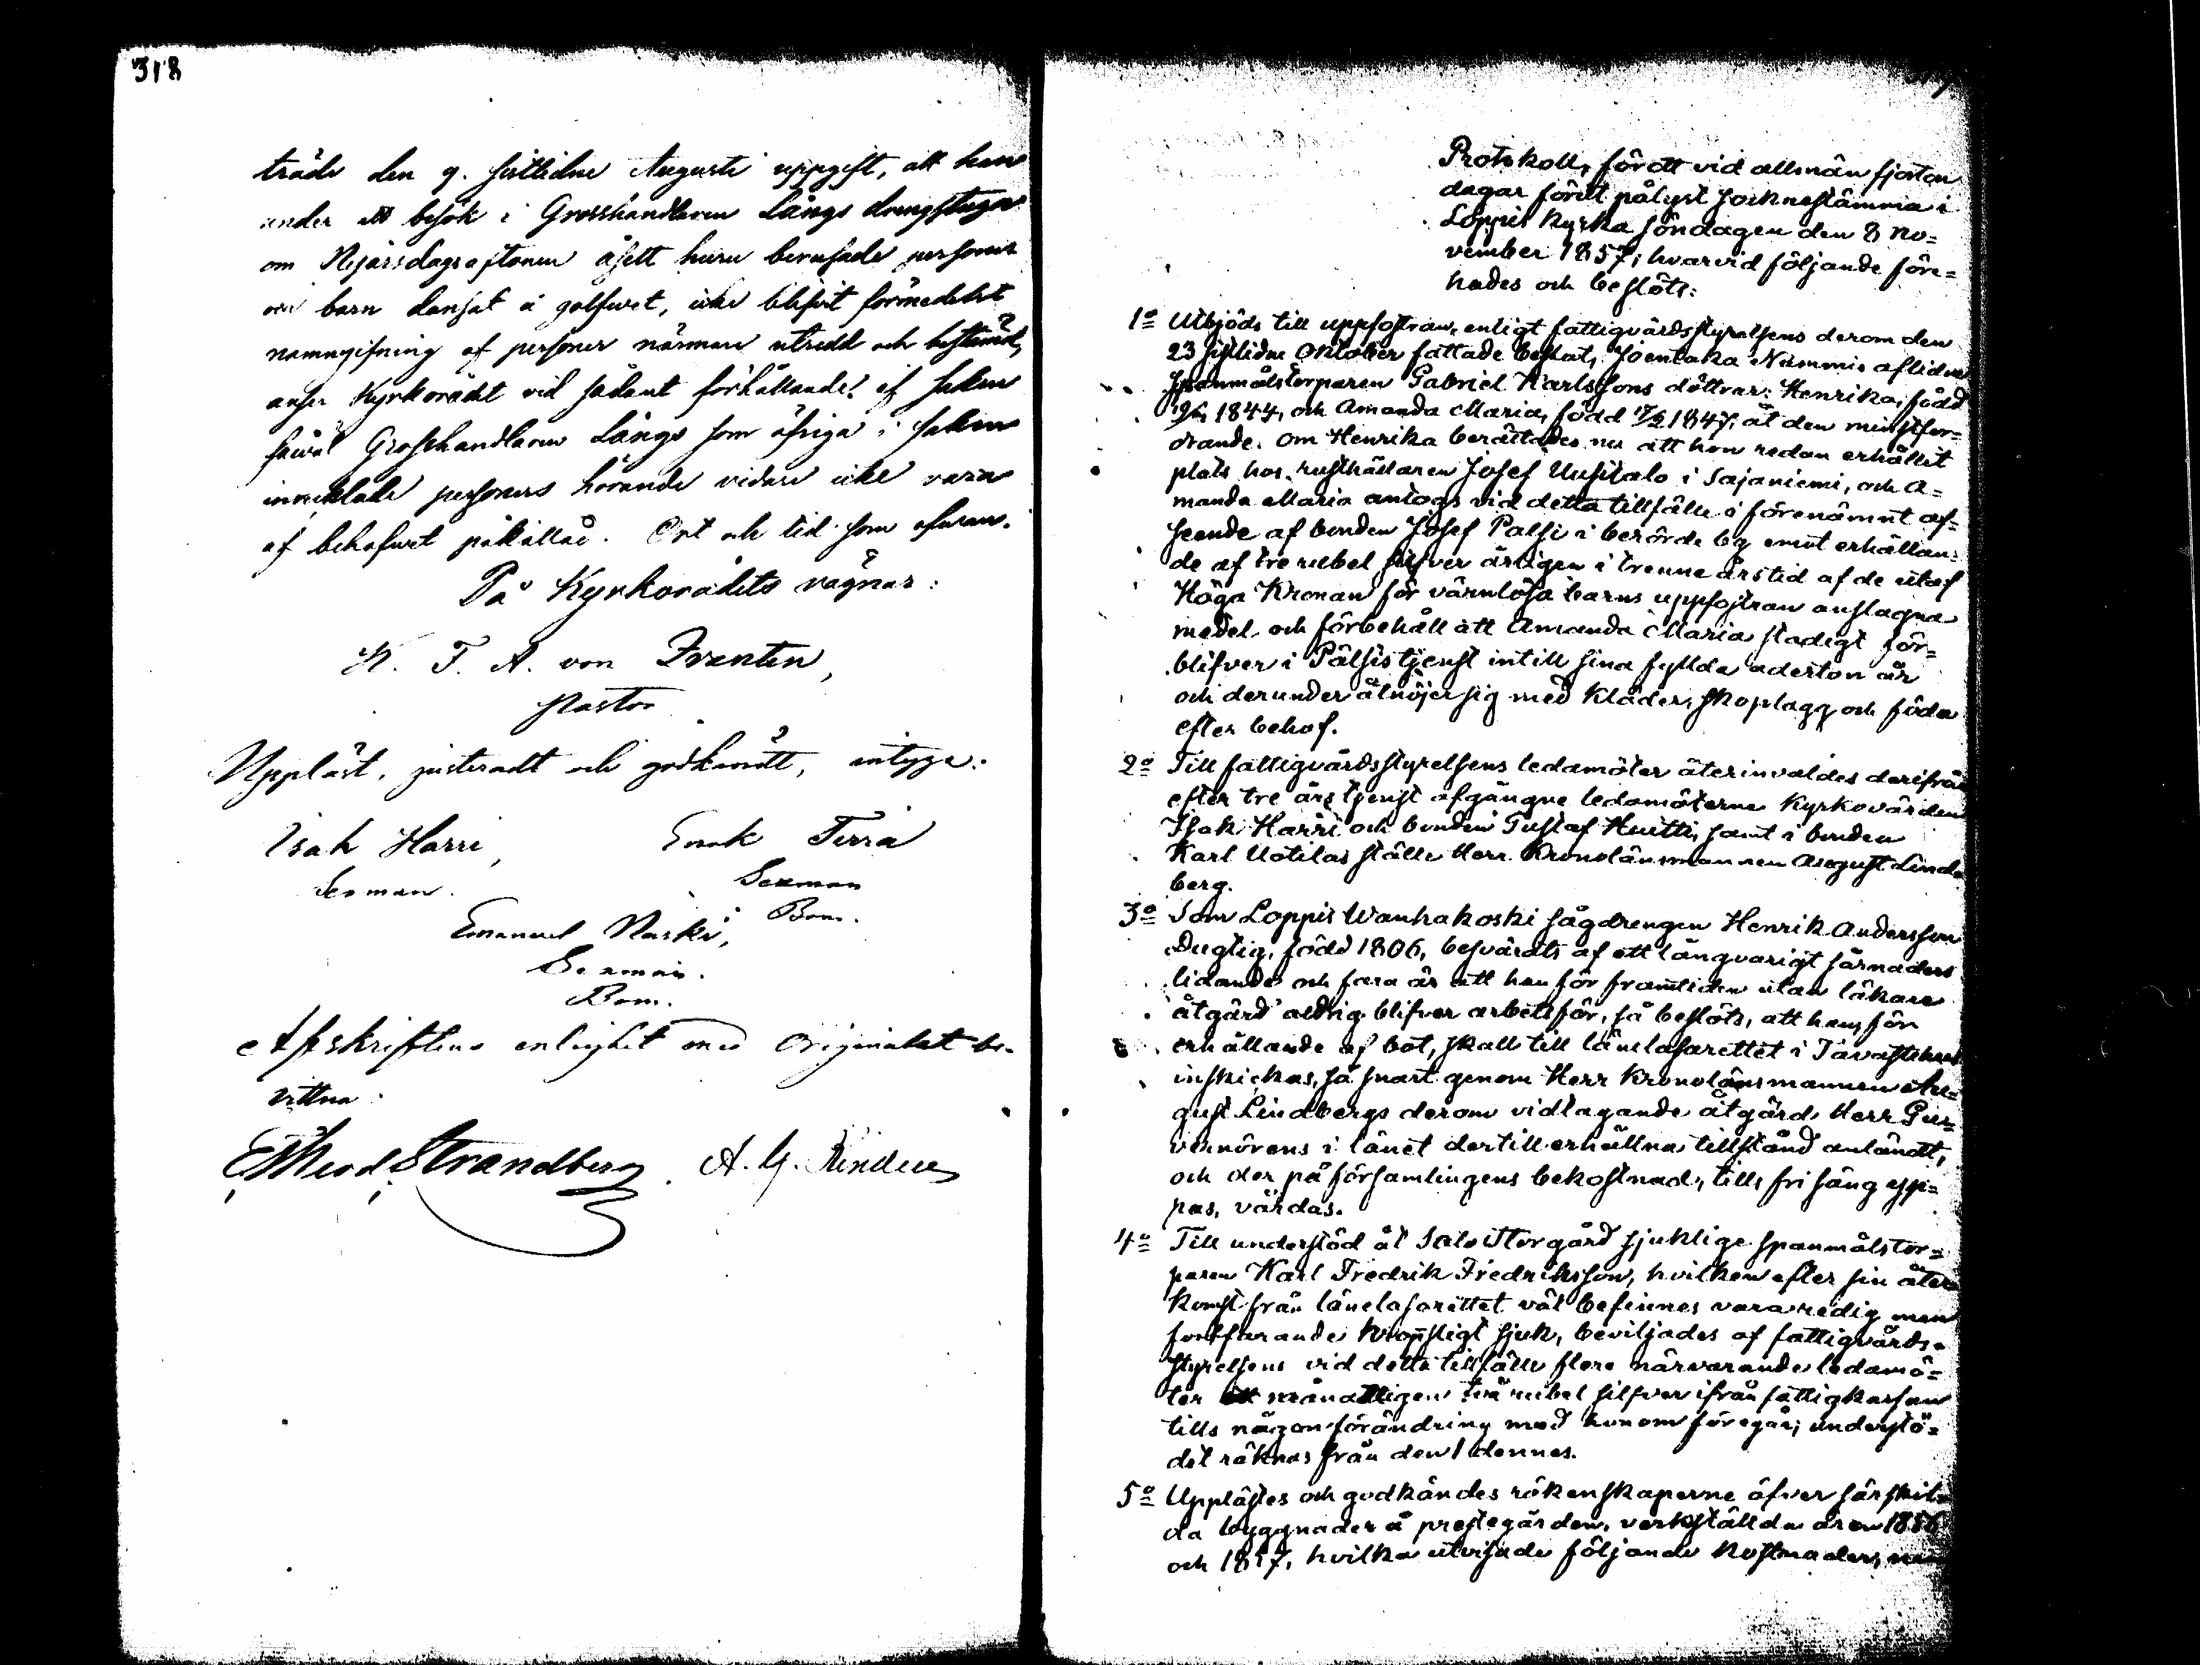 318
träde den 9. sistlidne Augusti uppgift, att han
under ett besök i Grosshandlaren Långs drängstuga
om Nyårsdagsaftonen åsett huru berusade personer
och barn dansat å golfwet, icke blifvit förmedelst
namngifning af personer närmare utredd och bestämd,
anser Kyrkorådet vid sådant förhållande af saken
såwäl Grosshandlaren Långs som öfriga i saken
inveklade personers hörande vidare icke vara
af behofwet påkallad. Ort och tid som ofwan.
På Kyrkorådets vägnar:
K. F. A. von Zvanten,
Pastor
Uppläst, justeradt och godkändt, intyga:
Isak Harri, Enok Terrä
Sexman. Sexman
Bom.
Emanuel Uuski,
Sexman.
Bom.
Afskriftens enlighet med Originalet be-
vittna:
Theod. Strandberg. A. G.
Protokoll, fördt vid allmän fjorton
dagar förut pålyst socknestämma i
Loppis Kyrka söndagen den 8 No=
vember 1857; hvarvid följande före=
hades och beslöts:
1o Utbjöds till uppfostran, enligt fattigvårdsstyrelsens derom den
23 sistlidne Oktober fattade beslut, Joentaka Nummis aflidne
Spanmålstorparen Gabriel Karlssons döttrar: Henrika, född
1844, och Amanda Maria, född 1847, åt den minstfor=
drande. Om Henrika berättades nu att hon redan erhållit
plats hos rusthållaren Josef Uusitalo i Sajaniemi, och A=
manda Maria antogs vid detta tillfälle i förenämnt af=
seende af bonden Josef Palsi i berörde by emot erhållan=
de af tre rubel silfver årligen i trenne års tid af de utaf
Höga Kronan för värnlösa barns uppfostran anslagna
medel och förbehåll att Amanda Maria stadigt för=
blifver i Pälsis tjenst intill sina fyllda aderton år
och derunder åtnöjer sig med kläder, skoplagg och föda
efter behof.
2o Till fattigvårdsstyrelsens ledamöter återinvaldes derifrån
efter tre års tjenst afgångne ledamöterne Kyrkovärden
Isak Harri och bonden Gustaf Huitti, samt i bonden
Karl Uotilas ställe Herr Kronolänsmannen August Lind=
berg.
3o Som Loppis Wanhakoski sågdrengen Henrik Andersson
Duglig, född 1806, besvärats af ett långvarigt sårnaders
lidande och fara är att han för framtiden utan läkare
åtgärd aldrig blifver arbetsför, så beslöts, att han, för
erhållande af bot, skall till länelasarettet i Tavastehus
inskickas, så snart genom Herr Kronolänsmannen Au=
gust Lindbergs derom vidtagande åtgärd Herr Guv=
vernörens i länet dertill erhållna tillstånd anländt,
och der på församlingens bekostnad, tills fri säng yp=
pas, vårdas.
4o Till understöd åt Salo Storgård sjuklige spanmålstor=
paren Karl Fredrik Fredriksson, hvilken efter sin åter
komst från länelasarettet väl befinnes vara redig men
fortfarande kroppsligt sjuk, beviljades af fattigvårds=
styrelsens vid detta tillfälle flere närvarande ledamö=
ter månatligen två rubel silfver ifrån fattigkassan
tills någon förändring med honom föregår; understö=
det räknas från den 1 dennes.
5o Upplästes och godkändes räkenskaperne öfver särskil=
da byggnader å prestegården, verkställda åren 1856
och 1857, hvilka utvisade följande kostnader,